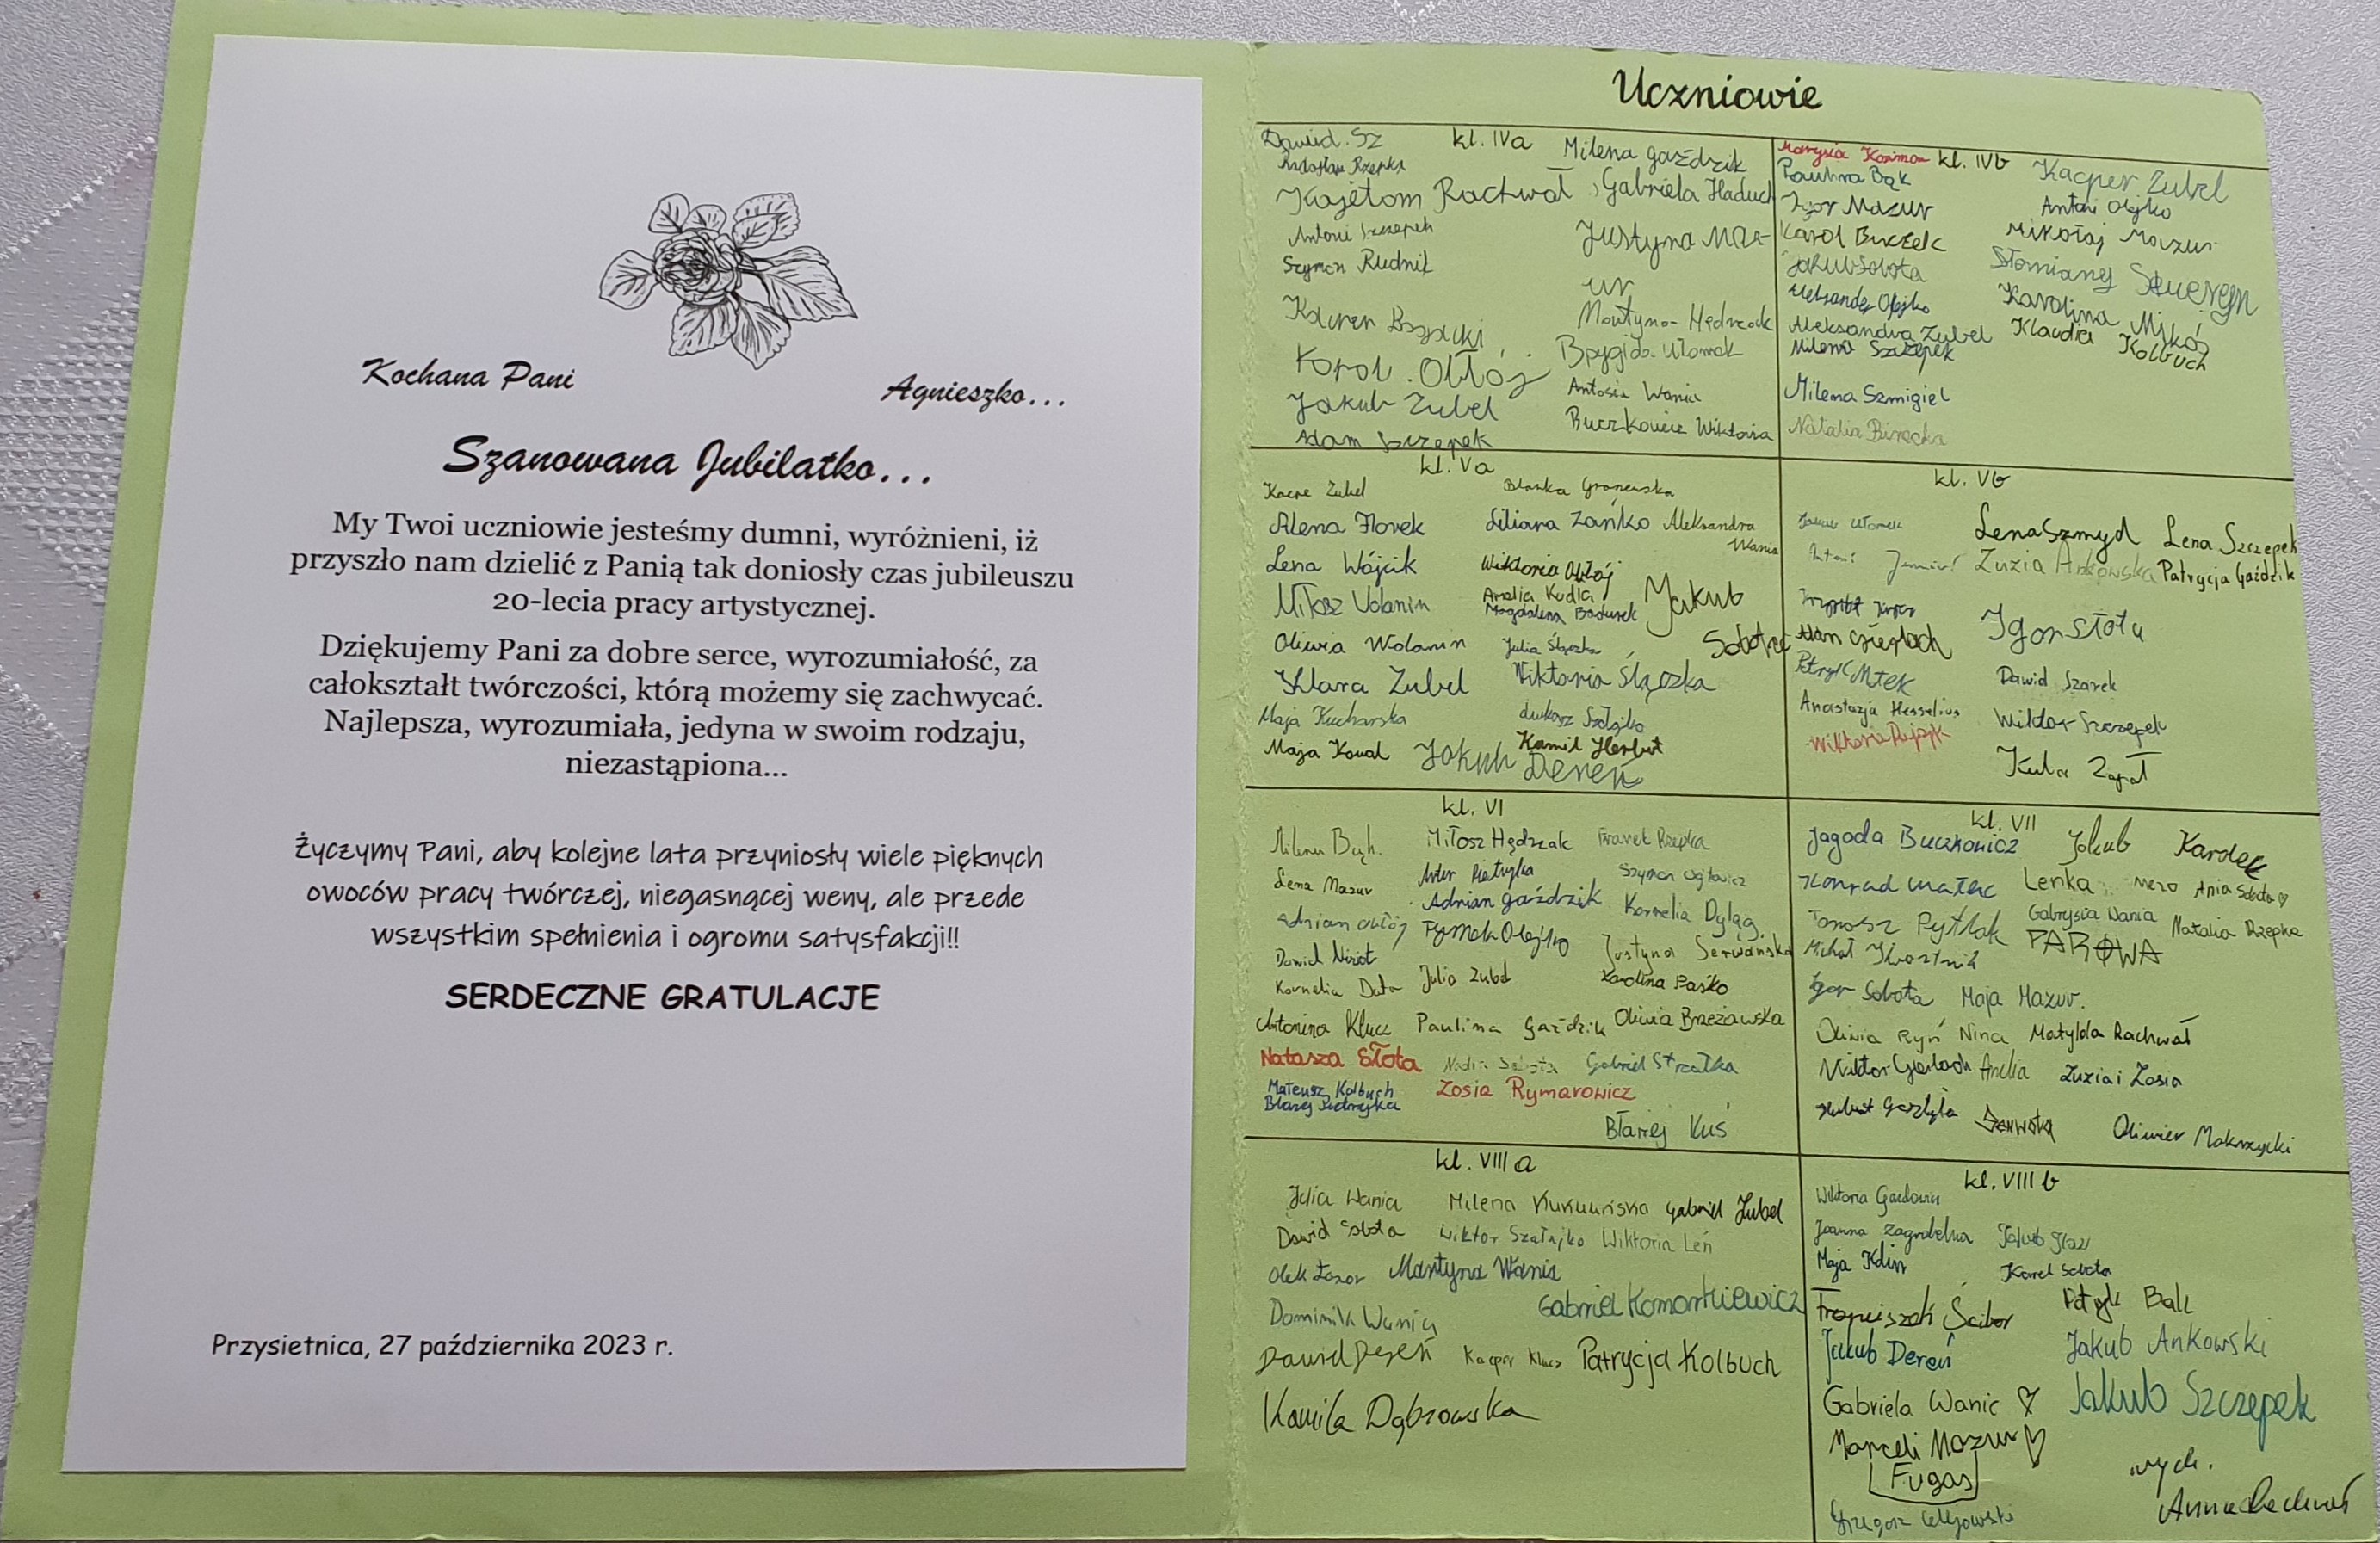 Kochana Pani Agnieszko...
Szanowana Jubilatko...
My Twoi uczniowie jesteśmy dumni, wyróżnieni, iż
przyszło nam dzielić z Panią tak doniosły czas jubileuszu
20-lecia pracy artystycznej.
Dziękujemy Pani za dobre serce, wyrozumiałość, za
całokształt twórczości, którą możemy się zachwycać.
Najlepsza, wyrozumiała, jedyna w swoim rodzaju,
niezastąpiona...
Życzymy Pani, aby kolejne lata przyniosły wiele pięknych
owoców pracy twórczej, niegasnącej weny, ale przede
wszystkim spełnienia i ogromu satysfakcji!!
SERDECZNE GRATULACJE
Przysietnica, 27 października 2023 r.
Uczniowie
kl. IVa
Dawid. Sz
Radosław Rzepka
Kajetan Rachwał
Antoni Szczepek
Szymon Rudnik
Kacper
Karol Obłój
Jakub Zubel
Adam Szczepek
Milena Gaździk
Gabriela Haduch
Justyna Maz-
ur
Martyna Hędrzak
Brygida Ułamek
Antosia Wania
Buczkowicz Wiktoria
kl. IVb
Marysia
Paulina Bąk
Igor Mazur
Karol Buczek
Jakub Sobota
Olejko
Aleksandra Zubel
Milena Szczepek
Milena Szmigiel
Natalia Birecka
Kacper Zubel
Antoni Olejko
Mikołaj Mazur
Słomiany Seweryn
Karolina Mikoś
Klaudia Kolbuch
kl. Va
Zubel
Alena Florek
Lena Wójcik
Miłosz Wolanin
Oliwia Wolanin
Klara Zubel
Maja Kucharska
Maja Kowal
Jakub Dereń
Blanka
Liliana Zańko
Aleksandra
Wania
Wiktoria Obłój
Amelia Kudła
Magdalena Bodurek
Jakub
Julia Ślączka
Wiktoria Ślączka
Łukasz Szałajko
Kamil Herbut
kl. Vb
Jakub Ułamek
Antoni
Adam Gierlach
Patryk
Anastazja Hesselius
Wiktoria
Lena Szmyd
Zuzia Ankowska
Igor Stota
Dawid Szarek
Wiktor Szczepek
Kuba Zapał
Lena Szczepek
Patrycja Gaździk
kl. VI
Milena Bąk.
Lena Mazur
Adrian Obłój
Dawid
Kornelia Data
Antonina Klucz
Natasza Słota
Mateusz Kolbuch
Błażej Pietryka
Miłosz Hędrzak
Artur Pietryka
Adrian Gaździk
Szymek Olejko
Julia Zubel
Paulina Gaździk
Nadia Sobota
Zosia Rymarowicz
Franek Rzepka
Szymon Wójtowicz
Kornelia Dyląg.
Justyna Serwańska
Karolina Paśko
Oliwia Brzeżawska
Gabriel Strzałka
Błażej Kuś
kl. VII
Jagoda Buczkowicz
Konrad Małek
Tomasz Pytlak
Michał Kwaśnik
Igor Sobota
Oliwia Ryń
Wiktor Gierlach
Hubert
Jakub Kardek
Lenka
Ania Sobota
Gabrysia Wania
Natalia Rzepka
PAROWA
Maja Mazur.
Nina
Matylda Rachwał
Amelia
Zuzia i Zosia
Oliwier Mokrzycki
kl. VIII a
Julia Wania
Dawid Sobota
Olek Łazor
Dominik Wania
Dawid Dereń
Kamila Dąbrowska
Milena
Wiktor Szałajko
Martyna Wania
Kacper Klucz
Gabriel Zubel
Wiktoria Leń
Gabriel Komarkiewicz
Patrycja Kolbuch
kl. VIII b
Wiktoria
Joanna Zagrobelna
Maja
Franciszek Ścibor
Jakub Dereń
Gabriela Wanic
Marceli Mazur
Fugas
Grzegorz
Jakub
Karol Sobota
Patryk Balk
Jakub Ankowski
Jakub Szczepek
wych.
Anna Rachwał